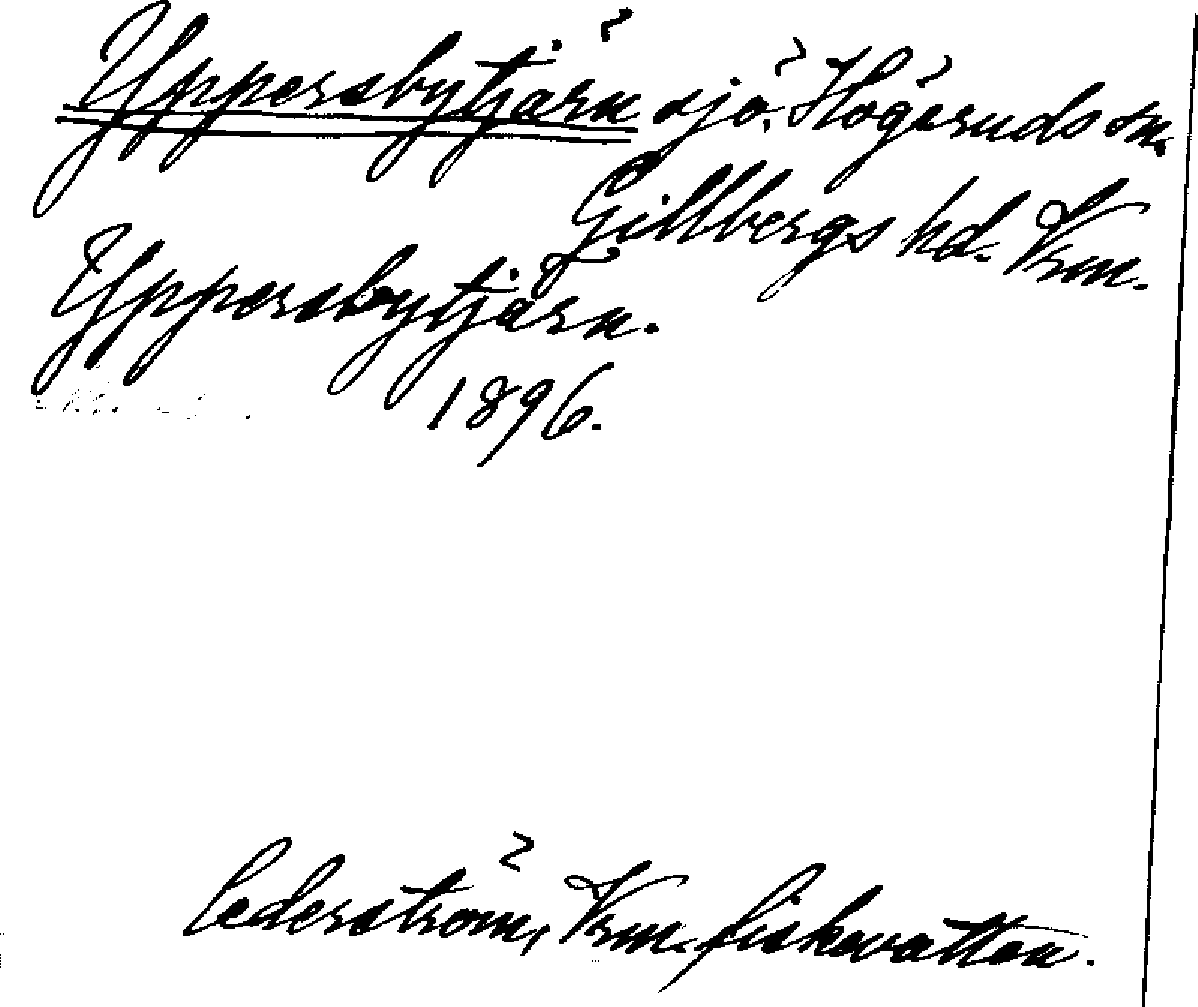 Yppersbytjärn sjö. Högeruds sn.
Gillbergs hd. Vrm.
Yppersbytjärn.
1896.
Cederström, Vrm. fiskevatten.